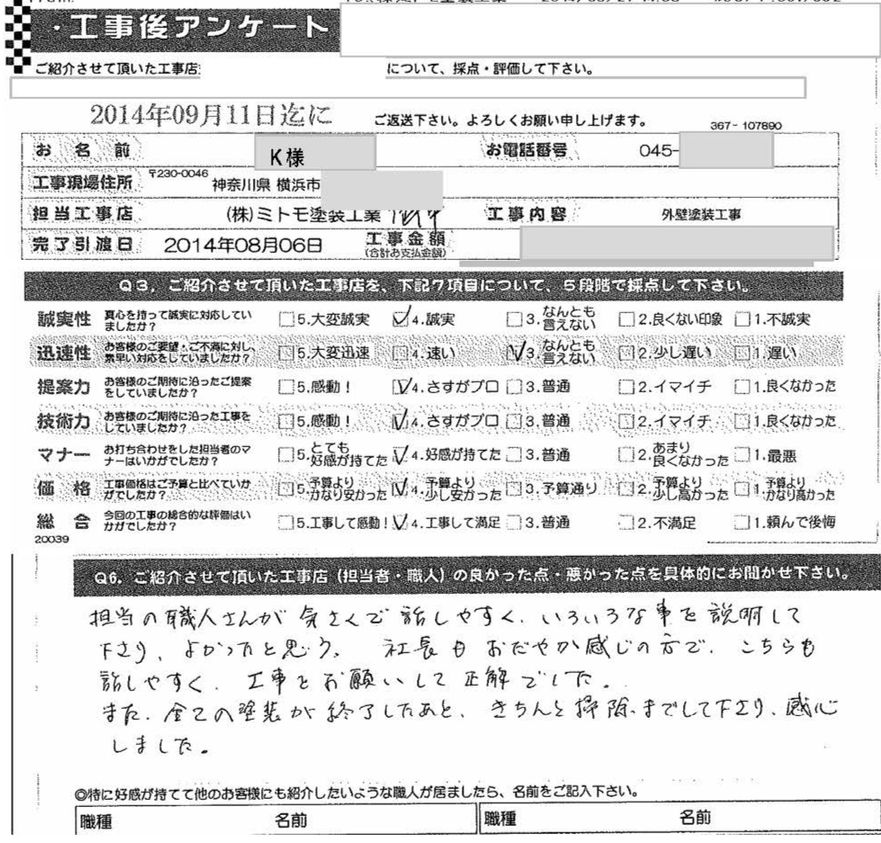 ・工事後アンケート
ご紹介させて頂いた工事店: について、採点・評価して下さい。
2014年09月11日迄に ご返送下さい。よろしくお願い申し上げます。 367-107890
お名前 K様 お電話番号 045-
工事現場住所 〒230-0046 神奈川県 横浜市
担当工事店 (株)ミトモ塗装工業 工事内容 外壁塗装工事
完了引渡日 2014年08月06日 工事金額 (合計お支払金額)
Q3. ご紹介させて頂いた工事店を、下記7項目について、5段階で採点して下さい。
誠実性 真心を持って誠実に対応していましたか? □5.大変誠実 ☑4.誠実 □3.なんとも言えない □2.良くない印象 □1.不誠実
迅速性 お客様のご要望・ご不満に対し、素早い対応をしていましたか? □5.大変迅速 □4.速い ☑3.なんとも言えない □2.少し遅い □1.遅い
提案力 お客様のご期待に沿ったご提案をしていましたか? □5.感動! ☑4.さすがプロ □3.普通 □2.イマイチ □1.良くなかった
技術力 お客様のご期待に沿った工事をしていましたか? □5.感動! ☑4.さすがプロ □3.普通 □2.イマイチ □1.良くなかった
マナー お打ち合わせをした担当者のマナーはいかがでしたか? □5.とても好感が持てた ☑4.好感が持てた □3.普通 □2.あまり良くなかった □1.最悪
価格 工事価格はご予算と比べていかがでしたか? □5.予算よりかなり安かった ☑4.予算より少し安かった □3.予算通り □2.予算より少し高かった □1.予算よりかなり高かった
総合 今回の工事の総合的な評価はいかがでしたか? □5.工事して感動! ☑4.工事して満足 □3.普通 □2.不満足 □1.頼んで後悔
20039
Q6. ご紹介させて頂いた工事店(担当者・職人)の良かった点・悪かった点を具体的にお聞かせ下さい。
担当の職人さんが気さくで話しやすく、いろいろな事を説明して
下さり、よかったと思う。社長もおだやか感じの方で、こちらも
話しやすく、工事をお願いして正解でした。
また、全ての塗装が終了したあと、きちんと掃除までして下さり、感心
しました。
◎特に好感が持てて他のお客様にも紹介したいような職人が居ましたら、名前をご記入下さい。
職種 名前 職種 名前